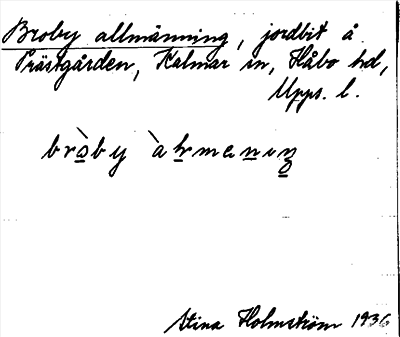 Broby allmänning, jordbit å
Prästgården, Kalmar sn, Håbo hd,
Upps. l.
bròby àlrmaniŋ
Stina Holmström 1936